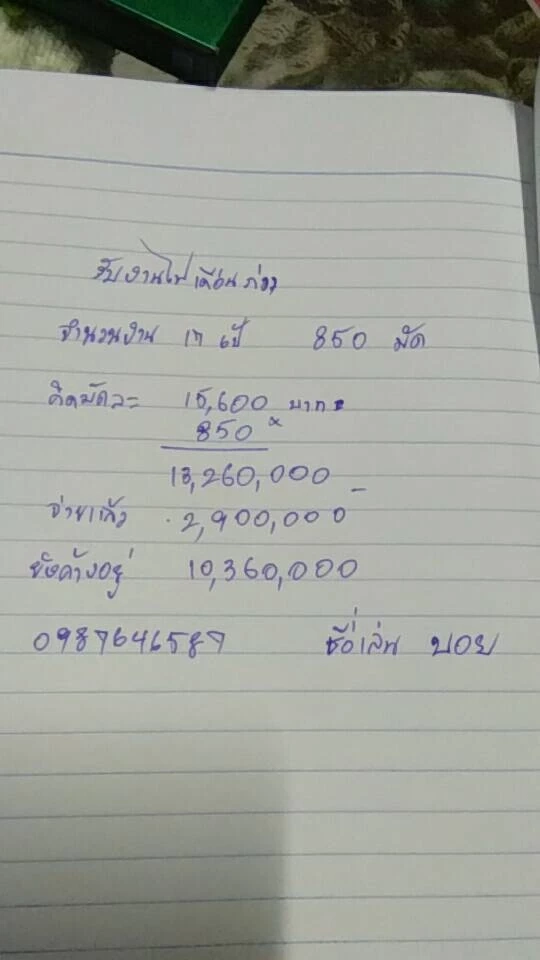 รับงานไปเดือนก่อน
จำนวนงาน 17 เป้ 850 มัด
คิดมัดละ 15,600 บาท
850 ×
13,260,000 -
จ่ายแล้ว 2,900,000
ยังค้างอยู่ 10,360,000
0987646587 ชื่อเล่น บอย